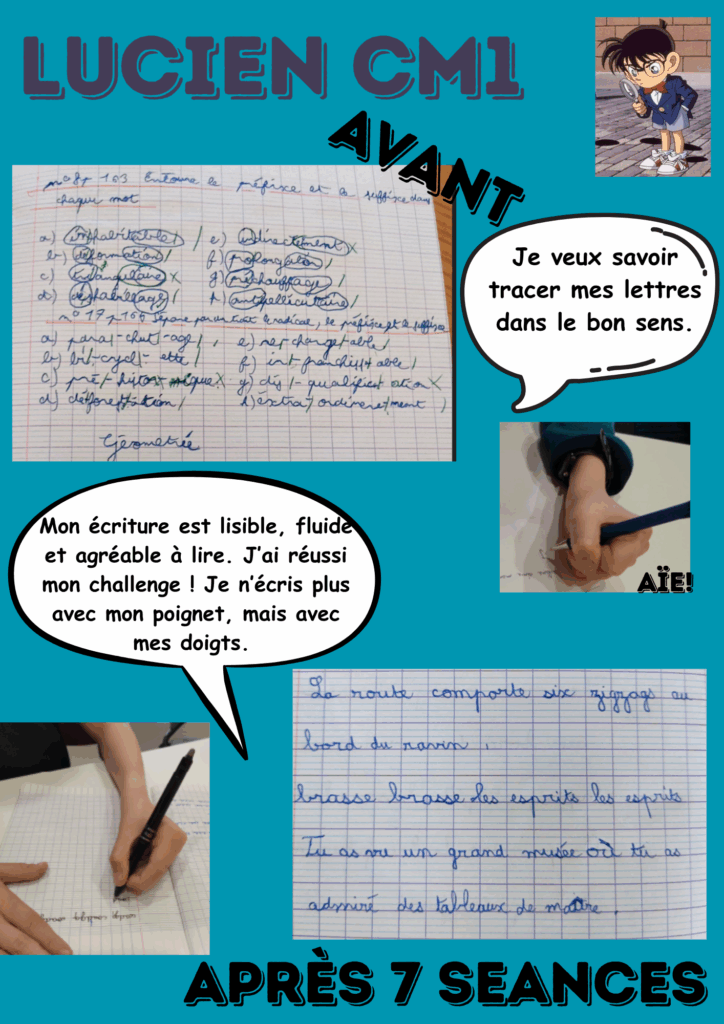 LUCIEN CM1
AVANT
n° 8 p 163 Entoure le préfixe et le suffixe dans
chaque mot
a) inhabitable / e) indirectement x
b) déformation / f) prolongation /
c) triangulaire x g) réchauffage /
d) déshabillage / h) antipelliculaire /
n° 17 p 165 Sépare par un trait le radical, le préfixe et le suffixe
a) para-chut-age / e) re/change/able /
b) bi-cycl-ette / f) in/franchiss/able /
c) pré/histor ique x g) dis/-qualificat ation x
d) déforestation / h) extra/ordinaire/ment /
Géometrie
Je veux savoir
tracer mes lettres
dans le bon sens.
AÏE!
Mon écriture est lisible, fluide
et agréable à lire. J'ai réussi
mon challenge ! Je n'écris plus
avec mon poignet, mais avec
mes doigts.
La route comporte six zigzags au
bord du ravin .
brasse brasse les esprits les esprits
Tu as vu un grand musée où tu as
admiré des tableaux de maître .
APRÈS 7 SEANCES